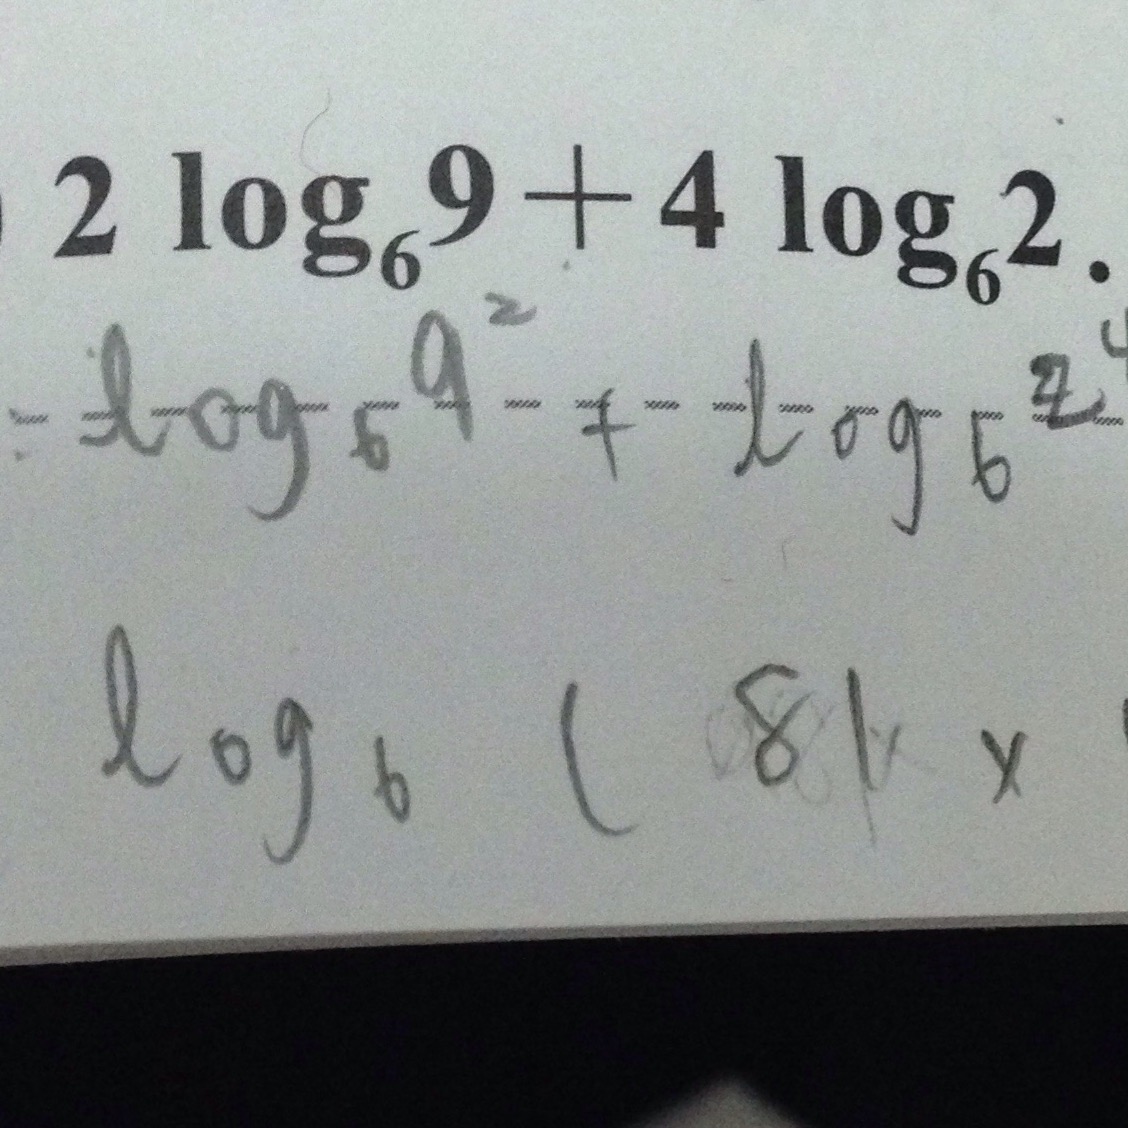 2 log₆9+4 log₆2.
= log₆9² + log₆2⁴
log₆ ( 81 x